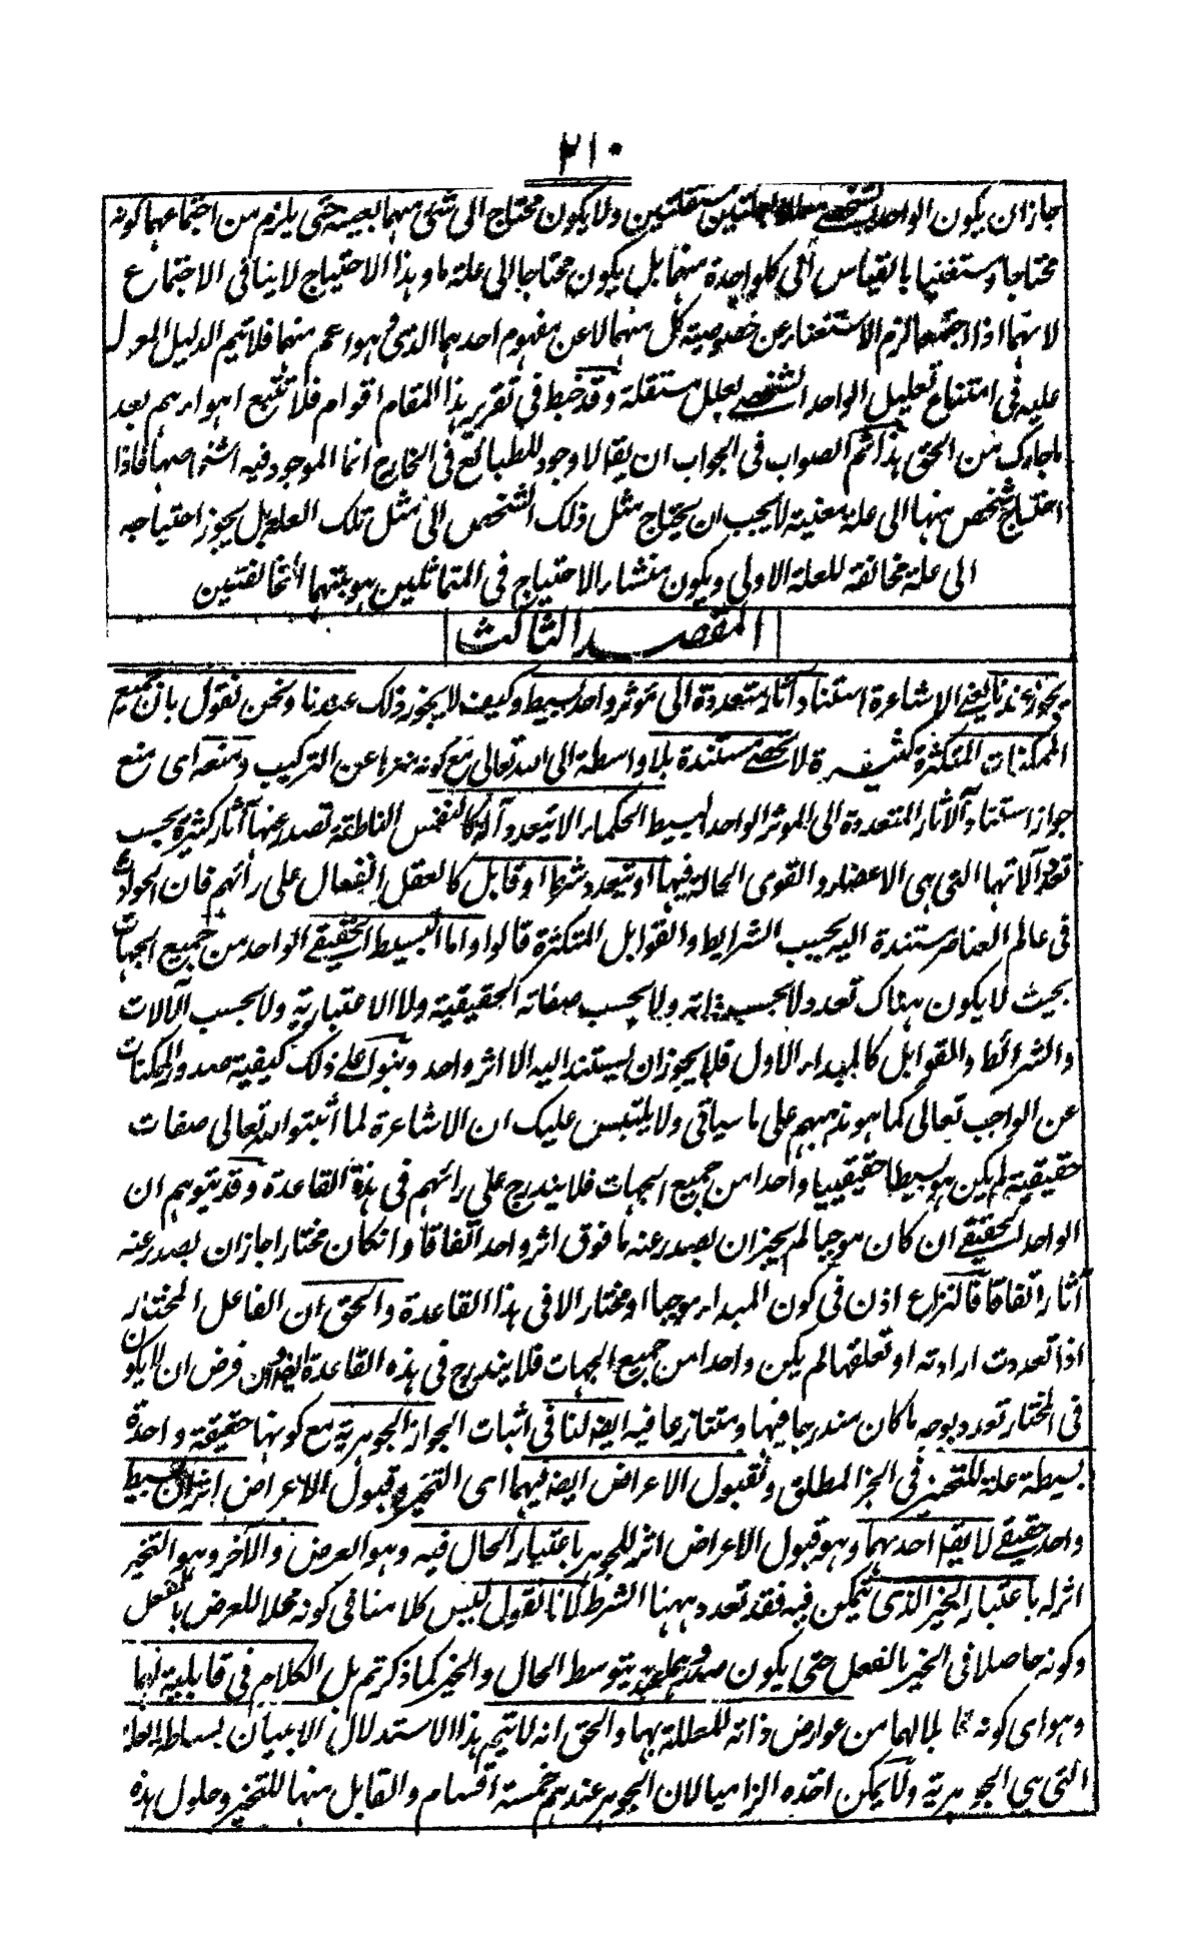 ٢١٠
جاز ان يكون الواحد الشخصي معللا بعلتين مستقلتين ولا يكون محتاجا الى شئ منهما بعينه حتى يلزم من اجتماعهما كونه
محتاجا ومستغنيا بالقياس الى كل واحدة منهما بل يكون محتاجا الى علة ما وهذا الاحتياج لا ينافى الاجتماع
لانهما اذا اجتمعا لزم الاستغناء عن خصوصية كل منهما لا عن مفهوم احدهما الذى هو اعم منهما فلا يتم الدليل المعول
عليه فى امتناع تعليل الواحد الشخصي بعلل مستقلة وقد خبط فى تقرير هذا المقام اقوام فلا تتبع اهواءهم بعد
ما جاءك من الحق هذا ثم الصواب فى الجواب ان يقال لا وجود للطبائع فى الخارج انما الموجود فيه اشخاصها فاذا
احتاج شخص منها الى علة معينة لا يجب ان يحتاج مثل ذلك الشخص الى مثل تلك العلة بل يجوز احتياجه
الى علة مخالفة للعلة الاولى ويكون منشاء الاحتياج فى المتماثلين هويتهما المتخالفتين
المقصد الثالث
يجوز عندنا يعني الاشاعرة استناد آثار متعددة الى مؤثر واحد بسيط وكيف لا يجوز ذلك عندنا ونحن نقول بان جميع
الممكنات المتكثرة كثرة لا تحصى مستندة بلا واسطة الى الله تعالى مع كونه منزها عن التركيب ومنعه اى منع
جواز استناد الآثار المتعددة الى المؤثر الواحد البسيط الحكماء الا بتعدد آلة كالنفس الناطقة تصدر عنها آثار كثيرة بحسب
تعدد آلاتها التى هى الاعضاء والقوى الحالة فيها او بتعدد شرط او قابل كالعقل الفعال على رأيهم فان الحوادث
فى عالم العناصر مستندة اليه بحسب الشرايط والقوابل المتكثرة قالوا واما البسيط الحقيقي الواحد من جميع الجهات
بحيث لا يكون هناك تعدد لا بحسب ذاته ولا بحسب صفاته الحقيقية ولا الاعتبارية ولا بحسب الآلات
والشرائط والقوابل كالمبداء الاول فلا يجوز ان يستند اليه الا اثر واحد وبنوا على ذلك كيفية صدور الممكنات
عن الواجب تعالى كما هو مذهبهم على ما سياتى ولا يلتبس عليك ان الاشاعرة لما اثبتوا لله تعالى صفات
حقيقية لم يكن هو بسيطا حقيقييا واحدا من جميع الجهات فلا يندرج على رائهم فى هذه القاعدة وقد يتوهم ان
الواحد الحقيقي ان كان موجبا لم يجز ان يصدر عنه ما فوق اثر واحد اتفاقا وانكان مختارا جاز ان يصدر عنه
آثار اتفاقا فالنزاع اذن فى كون المبداء موجبا او مختارا لا فى هذا القاعدة والحق ان الفاعل المختار
اذا تعددت ارادته او تعلقها لم يكن واحدا من جميع الجهات فلا يندرج فى هذه القاعدة فان فرض ان لا يكون
فى المختار تعدد بوجه ما كان مندرجا فيها ومتنازعا فيه ايضا لنا فى اثبات الجواز الجوهرية مع كونها حقيقة واحدة
بسيطة علة للتحيز فى الحيز المطلق ولقبول الاعراض ايضا فيهما اى التحيز وقبول الاعراض اثران لبسيط
واحد حقيقي لا يقال احدهما وهو قبول الاعراض اثر للجوهر باعتبار الحال فيه وهو العرض والآخر وهو التحيز
اثر له باعتبار الحيز الذى يتمكن فيه فقد تعدد ههنا الشرط لانا نقول ليس كلامنا فى كونه محلا للعرض بالفعل
وكونه حاصلا فى الحيز بالفعل حتى يكون بتوسط الحال والحيز كما ذكرتم بل الكلام فى قابلية لهما
وهو اى كونه قابلا لهما من عوارض ذاته المعللة بها والحق انه لا يتم هذا الاستدلال الا ببيان بساطة العلة
التى هى الجوهرية ولا يمكن اخذه الزاميا لان الجوهر عندهم خمسة اقسام والقابل منها للتحيز وحلول هذه